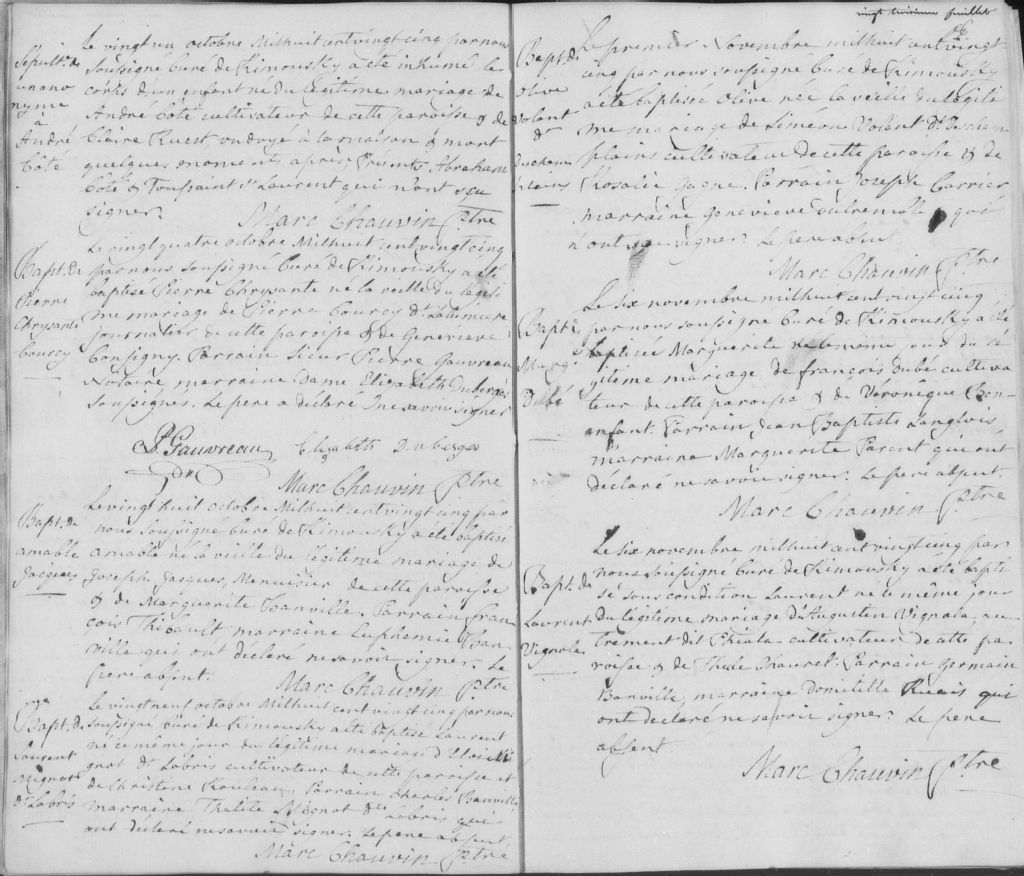 Sepult. de
un ano
nyme
à
André
Côté
Le vingt un octobre Milhuit cent vingt cinq par nous
soussigné Curé de Rimousky a été inhumé le
corps d'un enfant né du légitime mariage de
André Côté cultivateur de cette paroisse & de
Claire Ruest ondoyé à la maison & mort
quelques moments après. Présents Abraham
Côté & Toussaint St Laurent qui n'ont scu
signer.
Marc Chauvin Ptre
Bapt. de
Pierre
Chrysante
Courcy
Le vingt quatre octobre Milhuit cent vingt cinq
par nous soussigné Curé de Rimousky a été
baptisé Pierre Chrysante né la veille du légiti
me mariage de Pierre Courcy dt Lalumiere
journalier de cette paroisse & de Genevieve
Consigny. Parrain Sieur Pierre Gauvreau
Notaire marraine Dame Elizabeth Dubergès
soussignés. Le pere a déclaré ne savoir signer
P. Gauvreau Elizabeth Duberges
Marc Chauvin Ptre
Bapt. de
amable
Jacques
Le vingt huit octobre Milhuit cent vingt cinq par
nous soussigné Curé de Rimousky a été baptisé
amable né la veille du légitime mariage de
Joseph Jacques, Menuisier de cette paroisse
& de Marguerite Banville. Parrain Fran
çois Thibault marraine Euphemie Ban
ville qui ont déclaré ne savoir signer. Le
pere absent.
Marc Chauvin Ptre
Bapt. de
Laurent
Mignot
dt Labris
Le vingt neuf octobre Milhuit cent vingt cinq par nous
soussigné Curé de Rimousky a été baptisé Laurent
né ce même jour du légitime mariage d'Eloi Mi
gnot dt Labris cultivateur de cette paroisse et
de Christine Rouleau. Parrain Charles Banville
marraine Thalite Mignot dte Labris qui
ont déclaré ne savoir signer. Le pere absent.
Marc Chauvin Ptre
vingt troisieme feuillet
Bapt. de
Olive
Volant
dt
Descham
plains
Le premier Novembre milhuit cent vingt
cinq par nous soussigné Curé de Rimousky
a été baptisée Olive née la veille du légiti
me mariage de Siméon Volant dt Descham
plains cultivateur de cette paroisse & de
Rosalie Gagné. Parrain Joseph Carrier
marraine Genevieve Outremble qui
n'ont scu signer. Le pere absent
Marc Chauvin Ptre
Bapt.
Marg.
Dubé
Le six novembre milhuit cent vingt cinq
par nous soussigné Curé de Rimousky a été
baptisée Marguerite née ce même jour du lé
gitime mariage de François Dubé cultiva
teur de cette paroisse & de Véronique Bon-
enfant. Parrain Jean Baptiste Langlois,
marraine Marguerite Parent qui ont
déclaré ne savoir signer. Le pere absent.
Marc Chauvin Ptre
Bapt. de
Laurent
Vignola
Le six novembre milhuit cent vingt cinq par
nous soussigné Curé de Rimousky a été bapti
sé sous condition Laurent né le même jour
du légitime mariage d'Augustin Vignola, au
trement dit Chiala cultivateur de cette pa
roisse & de Thecle Chauret. Parrain Germain
Banville, marraine Domitille Ruais qui
ont déclaré ne savoir signer. Le pere
absent
Marc Chauvin Ptre